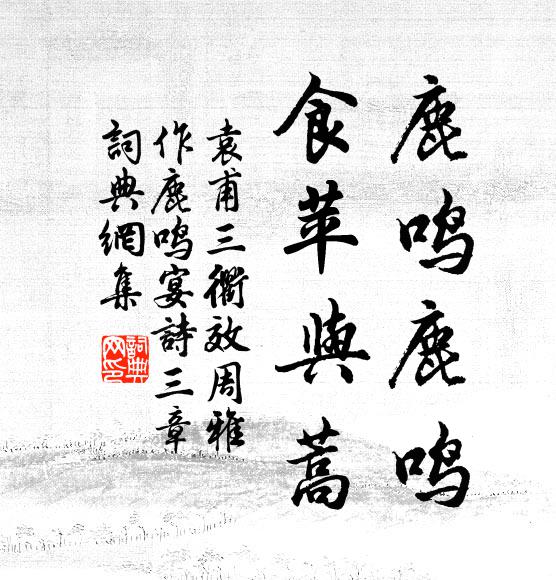 鹿鳴鹿鳴
食苹與蒿
袁甫三衢效周雅
作鹿鳴宴詩三章
詞典網集
詞典网印